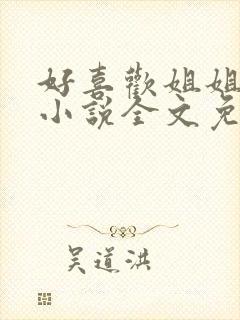 好喜歡姐姐
小說全文免
吳道洪